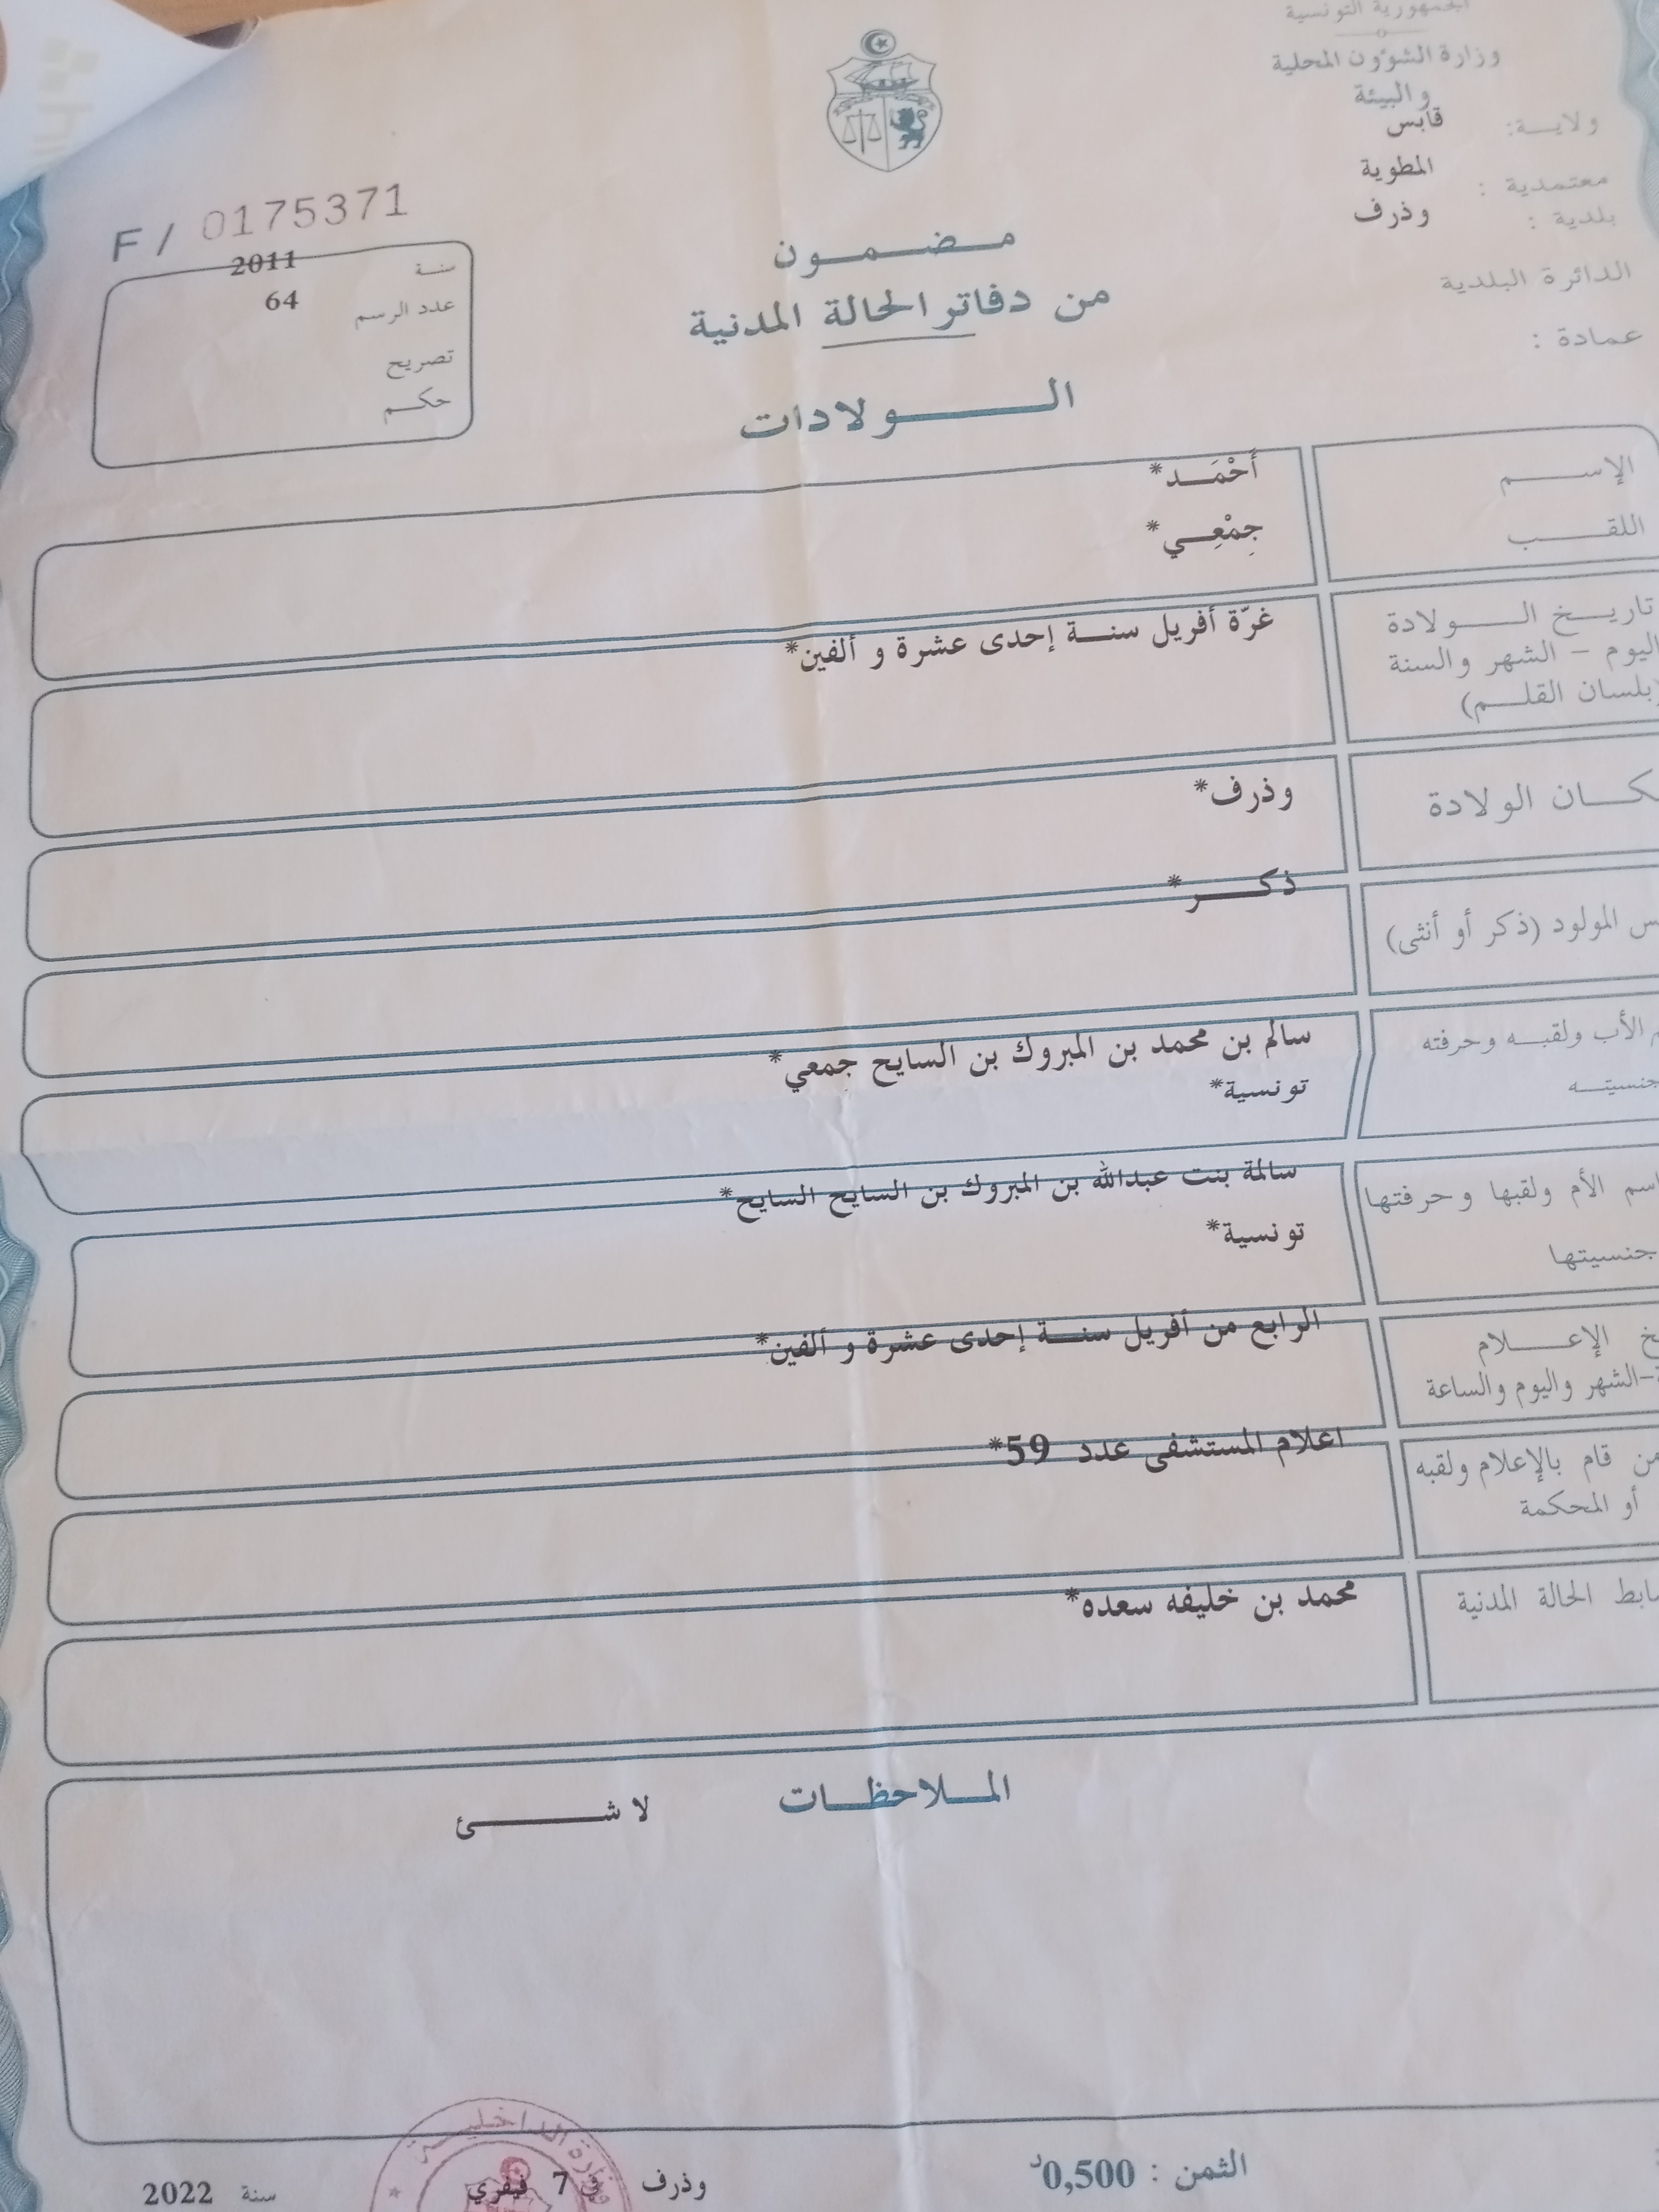 الجمهورية التونسية
وزارة الشؤون المحلية
والبيئة
ولايـــة: قابس
معتمدية : المطوية
بلدية : وذرف
الدائرة البلدية
عمادة :
F / 0175371
سنة 2011
عدد الرسم 64
تصريح
حكم
مضمون
من دفاتر الحالة المدنية
الولادات
الإسم أَحْمَد*
اللقب جِمْعِي*
تاريخ الولادة غرّة أفريل سنة إحدى عشرة و ألفين*
اليوم - الشهر والسنة
(بلسان القلم)
كان الولادة وذرف*
س المولود (ذكر أو أنثى) ذكر*
م الأب ولقبه وحرفته سالم بن محمد بن المبروك بن السايح جمعي*
جنسيته تونسية*
اسم الأم ولقبها وحرفتها سالمة بنت عبدالله بن المبروك بن السايح السايح*
جنسيتها تونسية*
خ الإعلام الرابع من أفريل سنة إحدى عشرة و ألفين*
ة-الشهر واليوم والساعة
من قام بالإعلام ولقبه اعلام المستشفى عدد 59*
أو المحكمة
ابط الحالة المدنية محمد بن خليفه سعده*
الملاحظات لا شئ
وزارة الداخلية
الثمن : 0,500د
وذرف في 7 فيفري سنة 2022